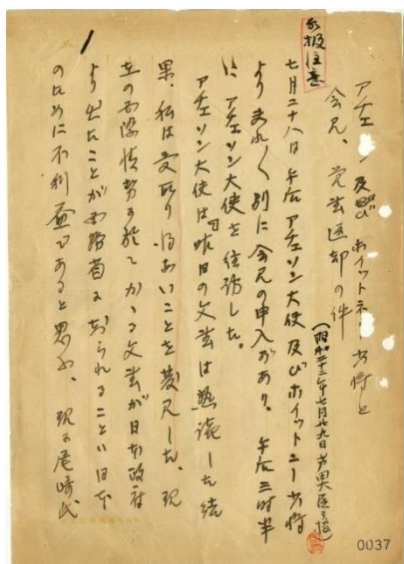 取扱注意
アチソン及びホイットネー少将と
会見、覚書返却の件
(昭和二十二年七月廿九日 芦田大臣口述)
七月二十八日午后アチェソン大使及びホイットニー少将
より まれ〱別に会見の申入があり、午后三時半
に アチェソン大使を往訪した。
アチェソン大使は「昨日の文書は熟読した結
果、私は受取り得ないことを発見した、現
在の国際情勢に於て かゝる文書が日本政府
より出たことが お知られることは日本
のために不利益であると思ふ、現に尾崎氏
0037